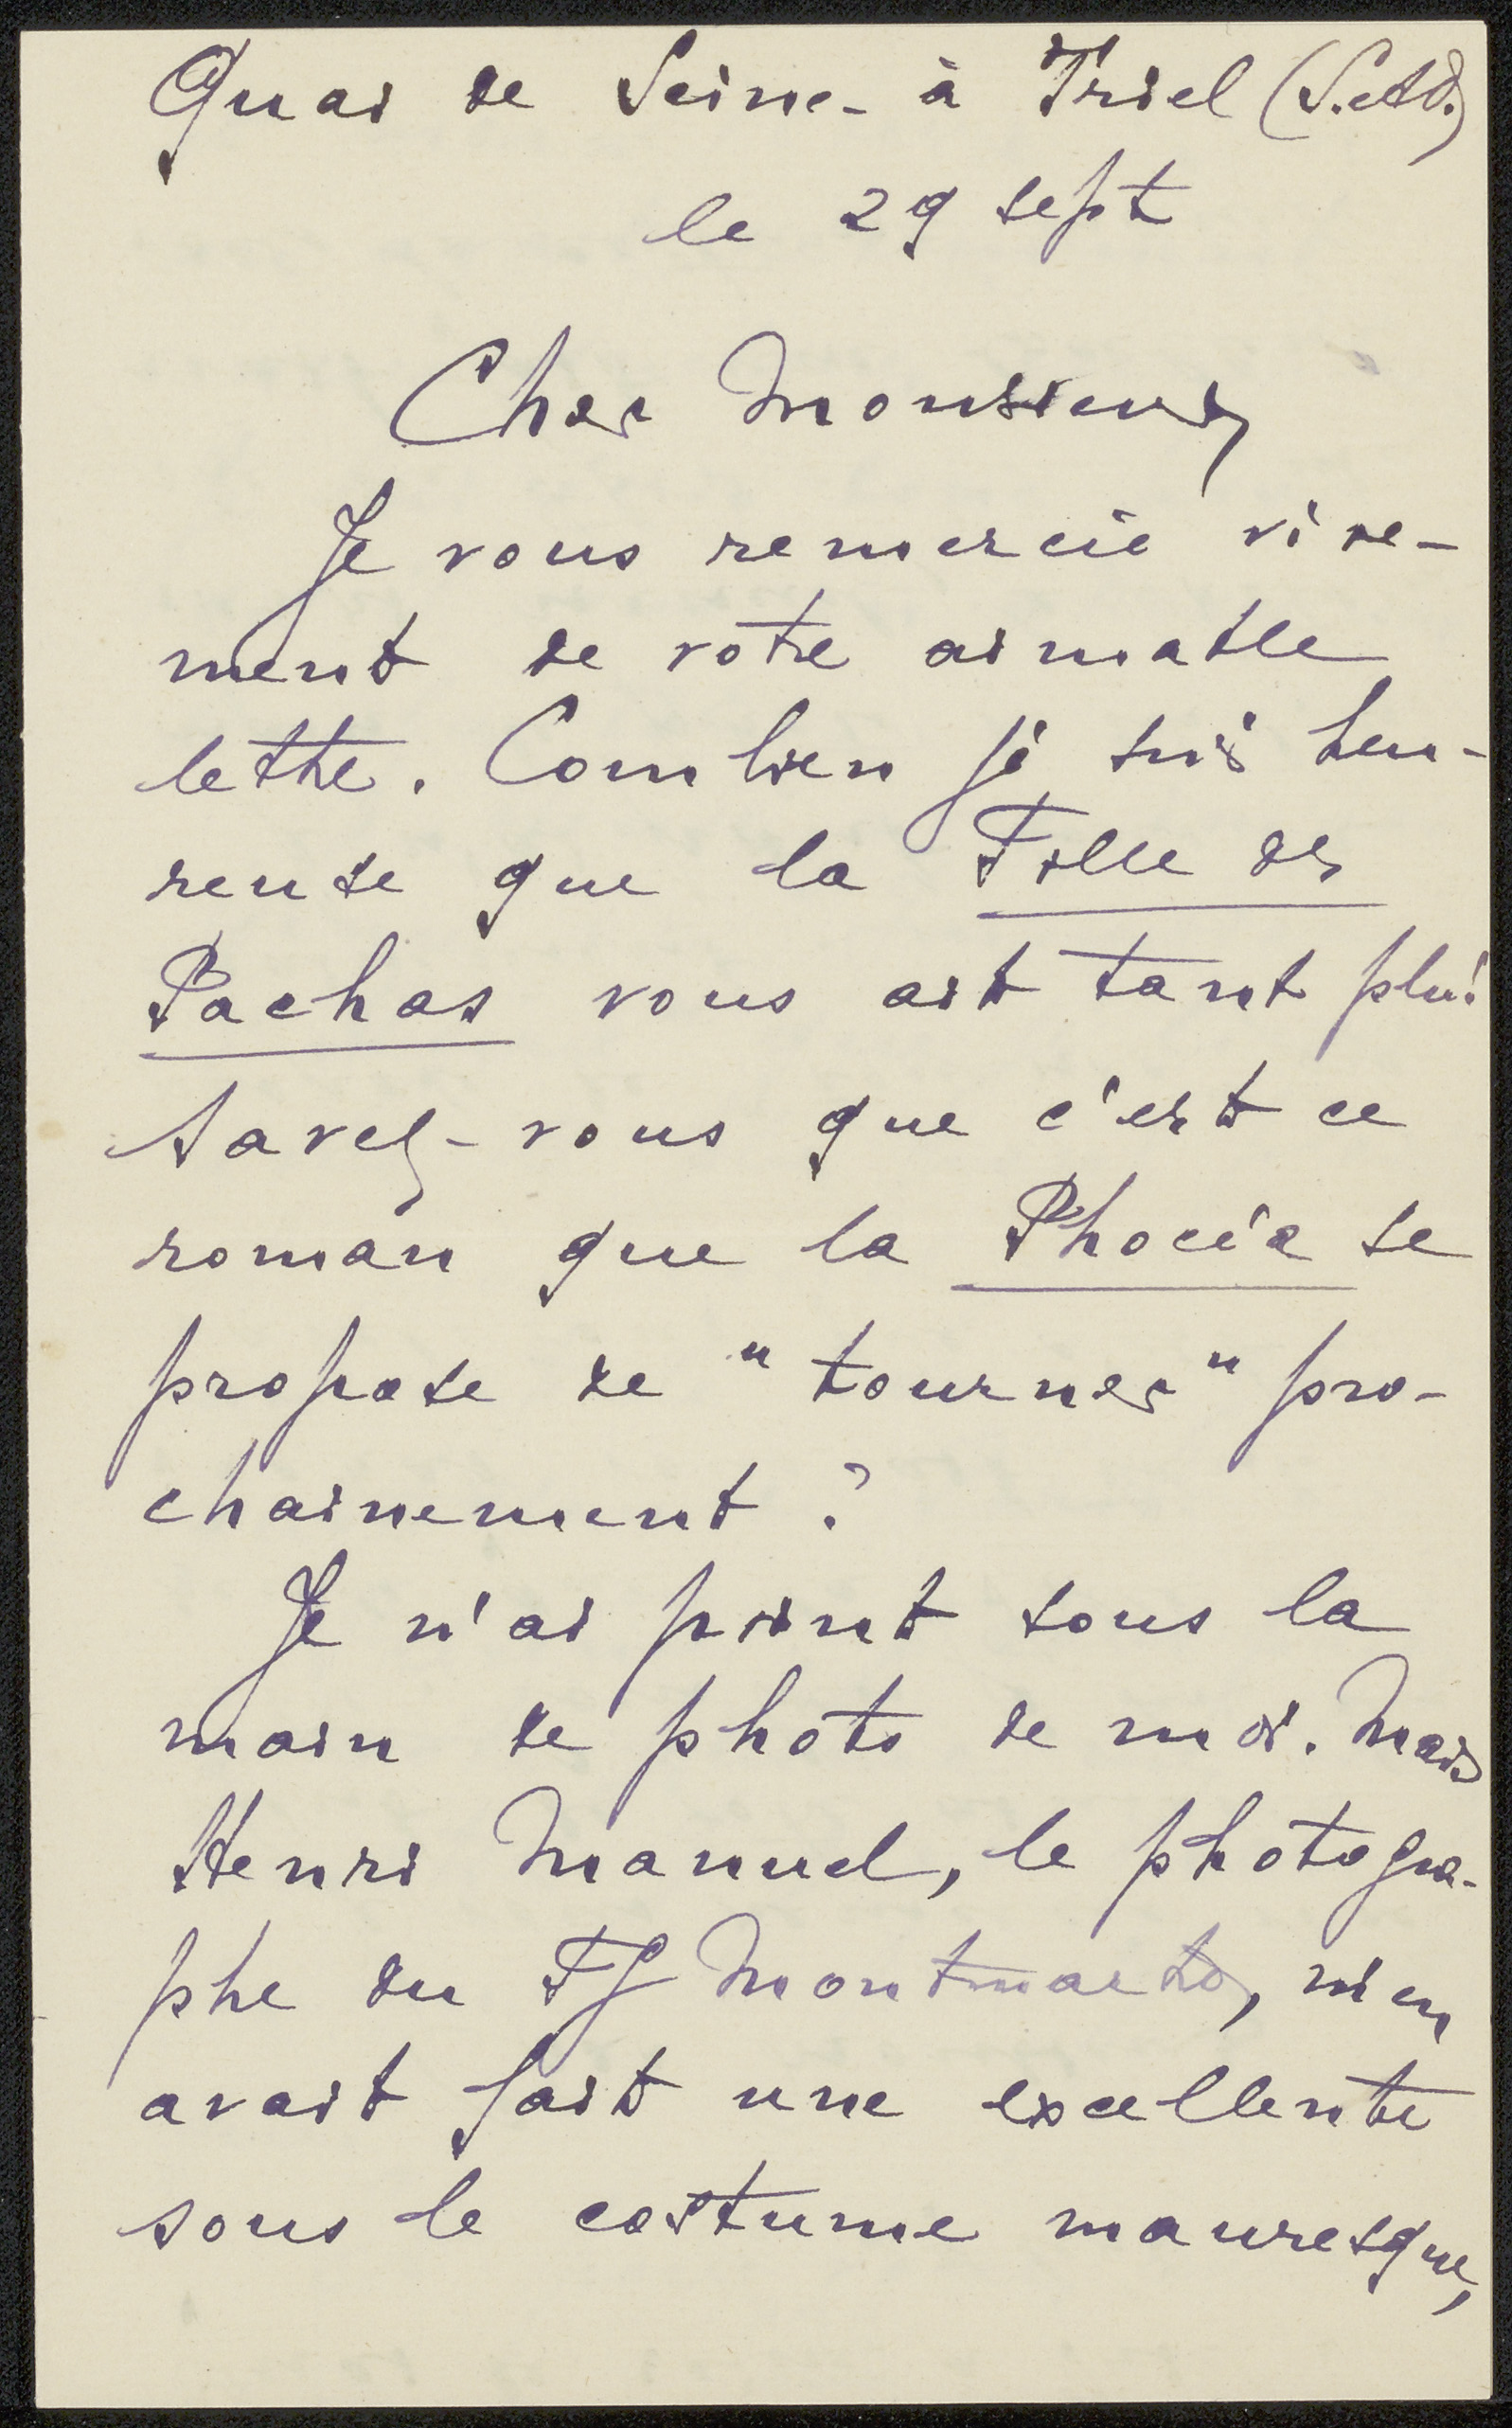 Quai de Seine - à Triel (S.etO.)
le 29 sept
Cher Monsieur,
Je vous remercie vive-
ment de votre aimable
lettre. Combien je suis heu-
reuse que la Fille des
Pachas vous ait tant plu!
Savez-vous que c'est ce
roman que la Phocéa se
propose de "tourner" pro-
chainement?
Je n'ai point sous la
main de photo de moi. Mais
Henri Manuel, le photogra-
phe du Fg Montmartre, m'en
avait fait une excellente
sous le costume mauresque,